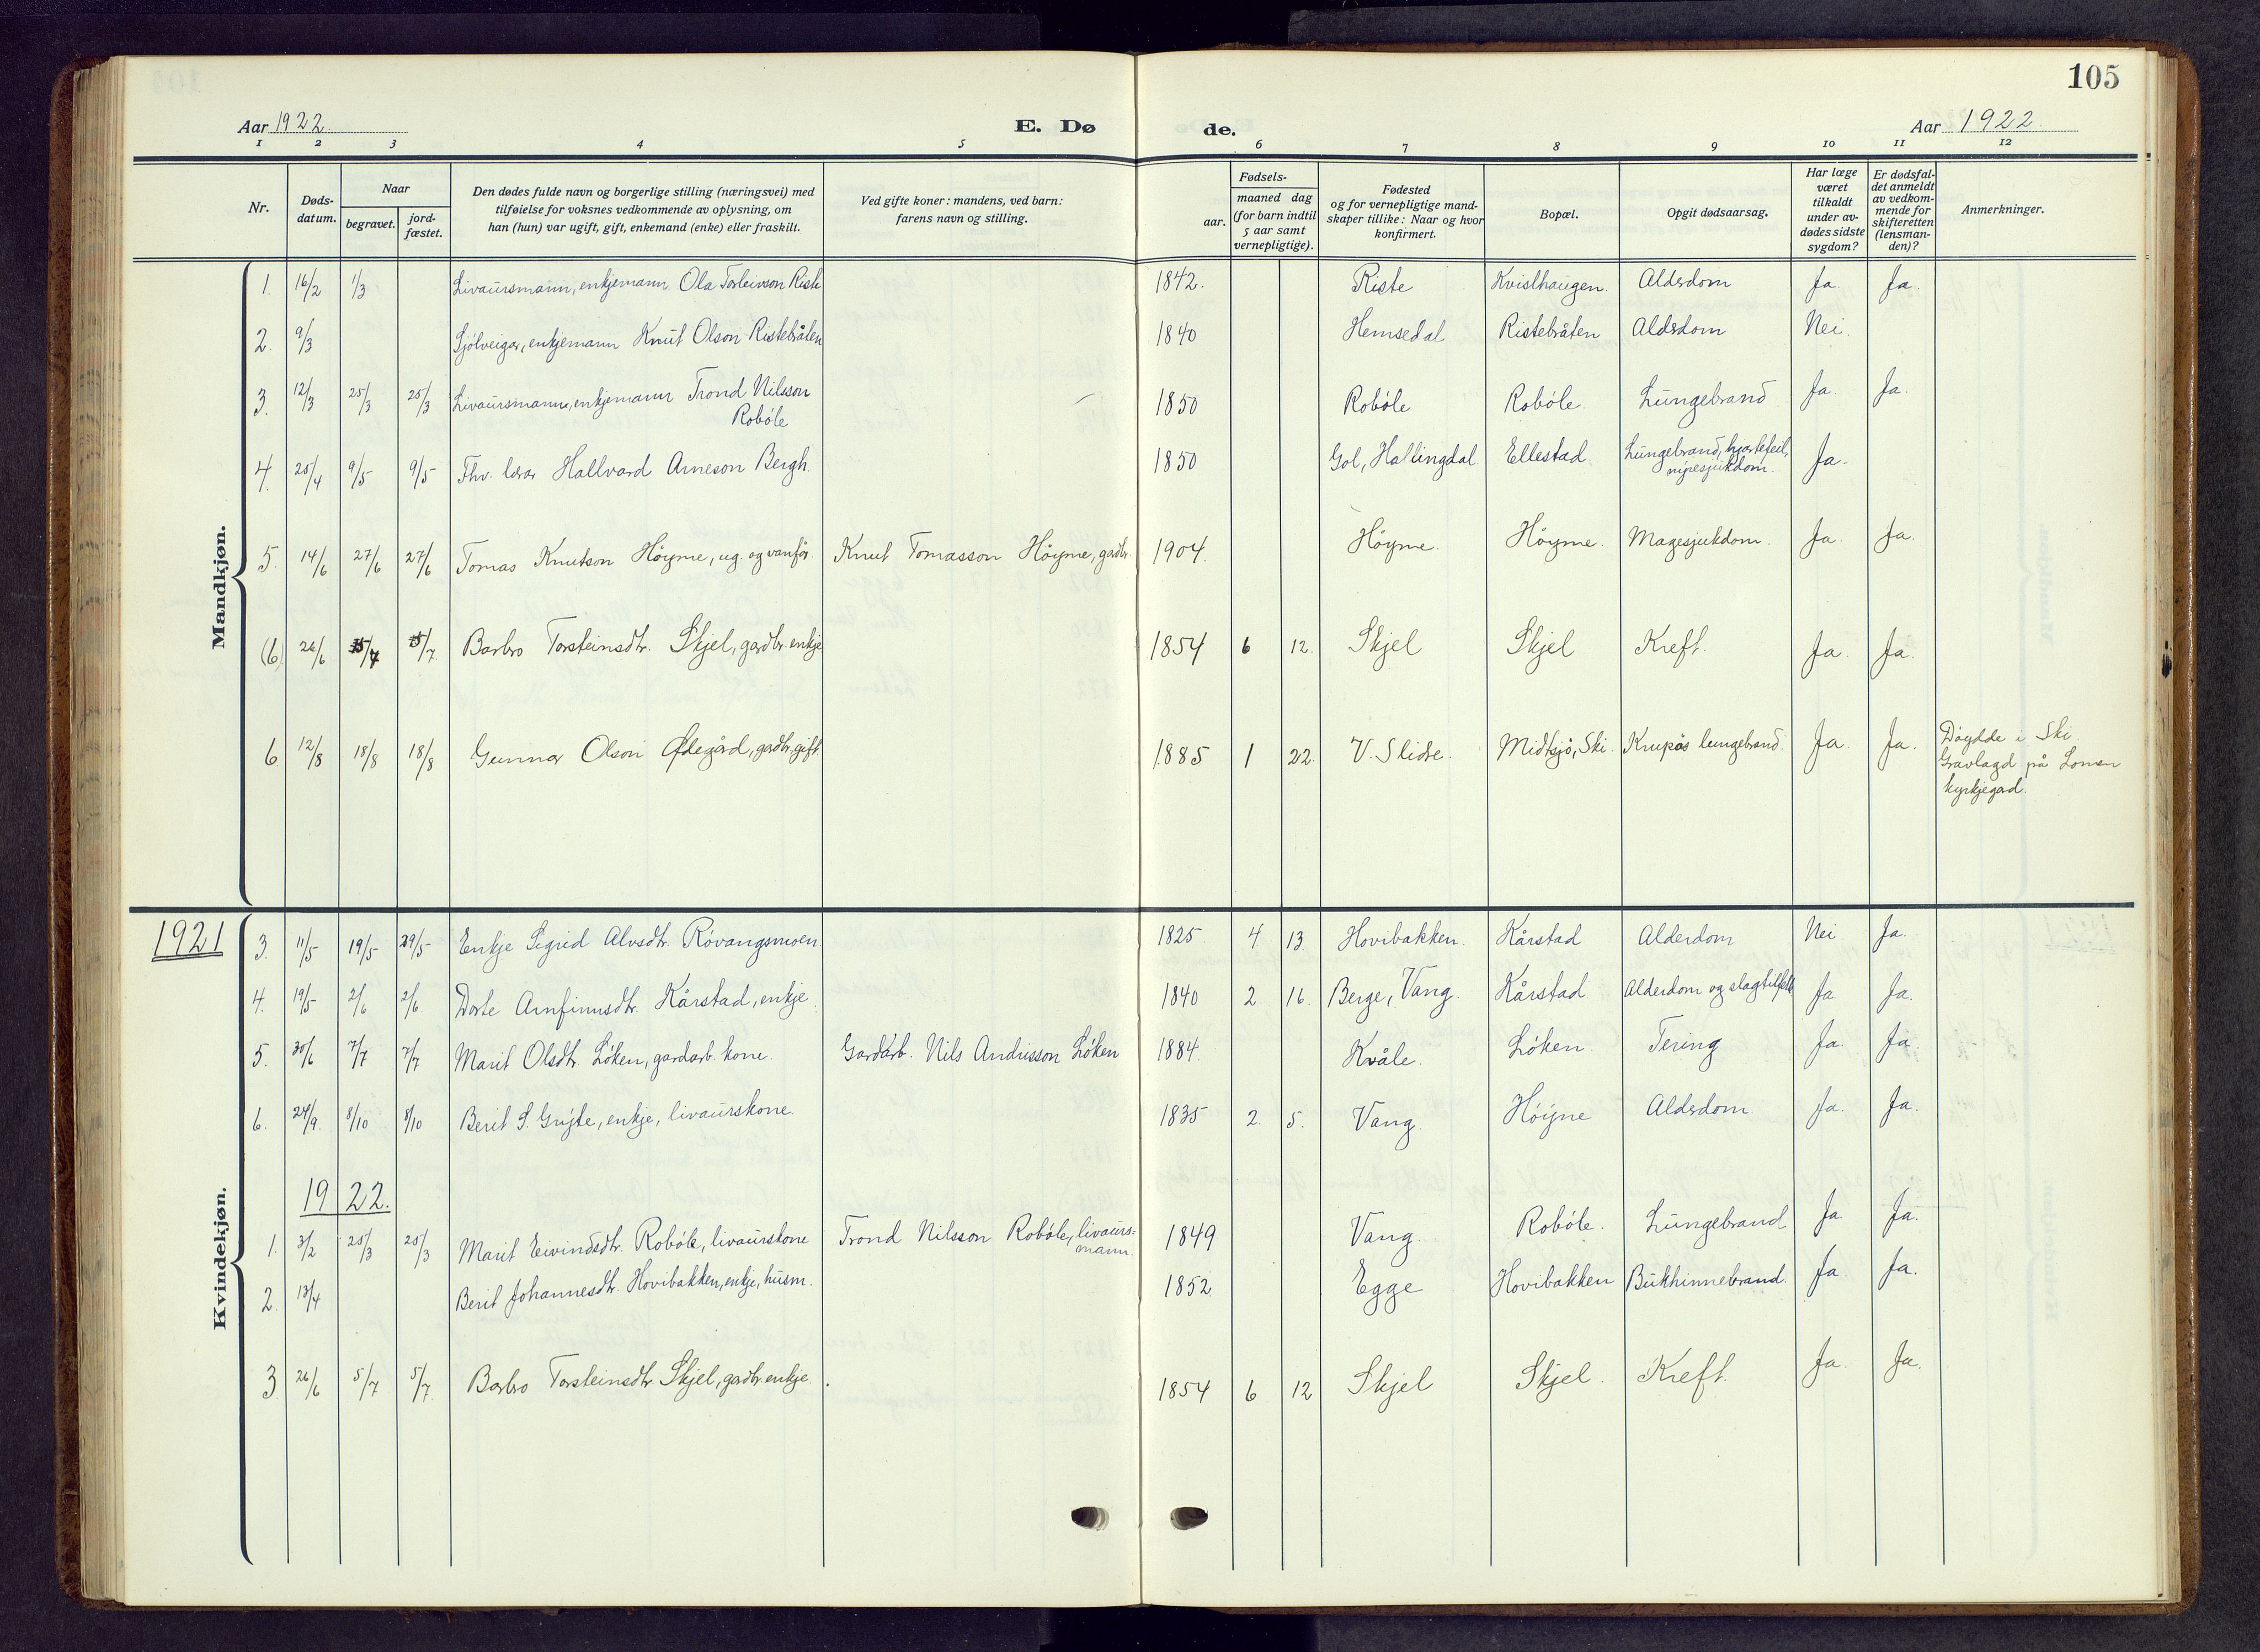 105
Aar 1922. E. Dø de. Aar 1922.
1 2 3 4 5 6 7 8 9 10 11 12
Nr.
Døds-
datum.
Naar
begravet.
jord-
fæstet.
Den dødes fulde navn og borgerlige stilling (næringsvei) med
tilføielse for voksnes vedkommende av oplysning, om
han (hun) var ugift, gift, enkemand (enke) eller fraskilt.
Ved gifte koner: mandens, ved barn:
farens navn og stilling.
Fødsels-
aar.
maaned dag
(for barn indtil
5 aar samt
vernepligtige).
Fødested
og for vernepligtige mand-
skaper tillike: Naar og hvor
konfirmert.
Bopæl.
Opgit dødsaarsag.
Har læge
været
tilkaldt
under av-
dødes sidste
sygdom?
Er dødsfal-
det anmeldt
av vedkom-
mende for
skifteretten
(lensman-
den)?
Anmerkninger.
Mandkjøn.
1. 16/2 1/3 Livaursmann, enkjemann Ola Torleivson Riste 1842. Riste Kvislhaugen. Alderdom Ja. Ja.
2. 9/3 Sjølveigar, enkjemann Knut Olson Ristebråten 1840 Hemsedal Ristebråten Alderdom Nei.
3. 12/3 25/3 25/3 Livaursmann, enkjemann Trond Nilsson
Robøle 1850 Robøle Robøle. Lungebrand Ja. Ja.
4. 25/4 9/5 9/5 Fhv. lærar Hallvard Arneson Bergh. 1850 Gol, Hallingdal. Ellestad. Lungebrand, hjartefeil,
nyresjukdom. Ja.
5. 14/6 27/6 27/6 Tomas Knutson Høyme, ug. og vanfør. Knut Tomasson Høyme, gardbr. 1904. Høyme. Høyme. Magesjukdom. Ja. Ja.
(6) 26/6 5/7 5/7 Barbro Torsteinsdtr. Skjel, gardbr. enkje 1854 6 12. Skjel Skjel Kreft. Ja. Ja.
6. 12/8 18/8 18/8 Gunnar Olson Ødegård, gardbr. gift 1885 1 22. V. Slidre. Midtsjø, Ski. Krupøs lungebrand. Ja. Ja. Døydde i Ski.
Gravlagd på Lomen
kyrkjegard.
Kvindekjøn.
1921
3. 11/5 19/5 29/5 Enkje Sigrid Alvsdtr. Røvangsmoen 1825 4 13. Hovibakken. Kårstad Alderdom Nei Ja.
4. 19/5 2/6 2/6 Dorte Arnfinnsdtr. Kårstad, enkje. 1840 2 16. Berge, Vang. Kårstad Alderdom og slagtilfelle Ja Ja.
5. 30/6 7/7 7/7 Marit Olsdtr. Løken, gardarb. kone. Gardarb. Nils Andrisson Løken 1884. Kvåle. Løken. Tering Ja. Ja.
6. 24/9. 8/10 8/10 Berit S. enkje, livaurskone. 1835 2. 5. Vang. Høyne Alderdom. Ja. Ja.
1922.
1. 3/2 25/3 25/3 Marit Eivindsdtr. Robøle, livaurskone Trond Nilsson Robøle, livaurs-
mann. 1849 Vang. Robøle. Lungebrand Ja. Ja.
2. 13/4 Berit Johannesdtr. Hovibakken, enkje, husm. 1852 Egge Hovibakken Bukhinnebrand. Ja. Ja.
3 26/6 5/7 5/7. Barbro Torsteinsdtr. Skjel, gardbr. enkje. 1854 6 12 Skjel Skjel. Kreft. Ja. Ja.